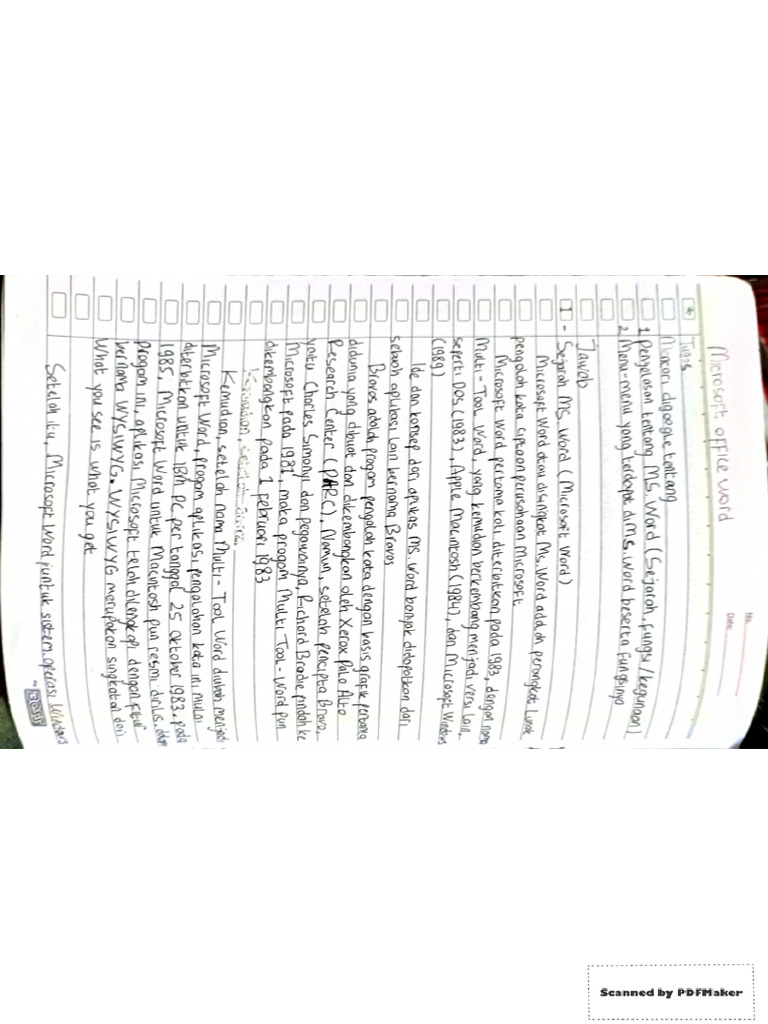 Microsoft office word
No.
Date:
Tugas
Mencari digoogle tentang
1. Penjelasan tentang MS. Word (Sejarah, fungsi/kegunaan)
2. Menu-menu yang terdapat di Ms. Word beserta fungsinya
Jawab
I - Sejarah MS. Word (Microsoft Word)
Microsoft Word atau disingkat Ms. Word adalah perangkat lunak
pengolah kata ciptaan perusahaan Microsoft
Microsoft Word pertama kali diterbitkan pada 1983, dengan nama
Multi-Tool Word, yang kemudian berkembang menjadi versi lain,
seperti DOS (1983), Apple Macintosh (1984), dan Microsoft Windows
(1989)
Ide dan konsep dari aplikasi MS. Word banyak didapatkan dari
sebuah aplikasi lain bernama Bravos
Bravos adalah progam pengolah kata dengan basis grafik pertama
didunia yang dibuat dan dikembangkan oleh Xerox Palo Alto
Research Center (PARC), Namun, setelah pencipta Bravo
yaitu Charles Simonyi dan pegawainya, Richard Brodie pindah ke
Microsoft pada 1981, maka progam Multi Tool-Word pun
dikembangkan pada 1 februari 1983
Kemudian, setelah nama Multi-Tool Word diubah menjadi
Microsoft Word, progam aplikasi pengolahan kata ini mulai
diterbitkan untuk IBM PC per tanggal 25 Oktober 1983. pada
1985, Microsoft Word untuk Macintosh pun resmi dirilis. dalam
progam ini, aplikasi Microsoft telah dilengkapi dengan fitur
bernama WYSIWYG. WYSIWYG merupakan singkatan dari
What you see is what you get
Setelah itu, Microsoft Word untuk sistem operasi Windows
Scanned by PDFMaker